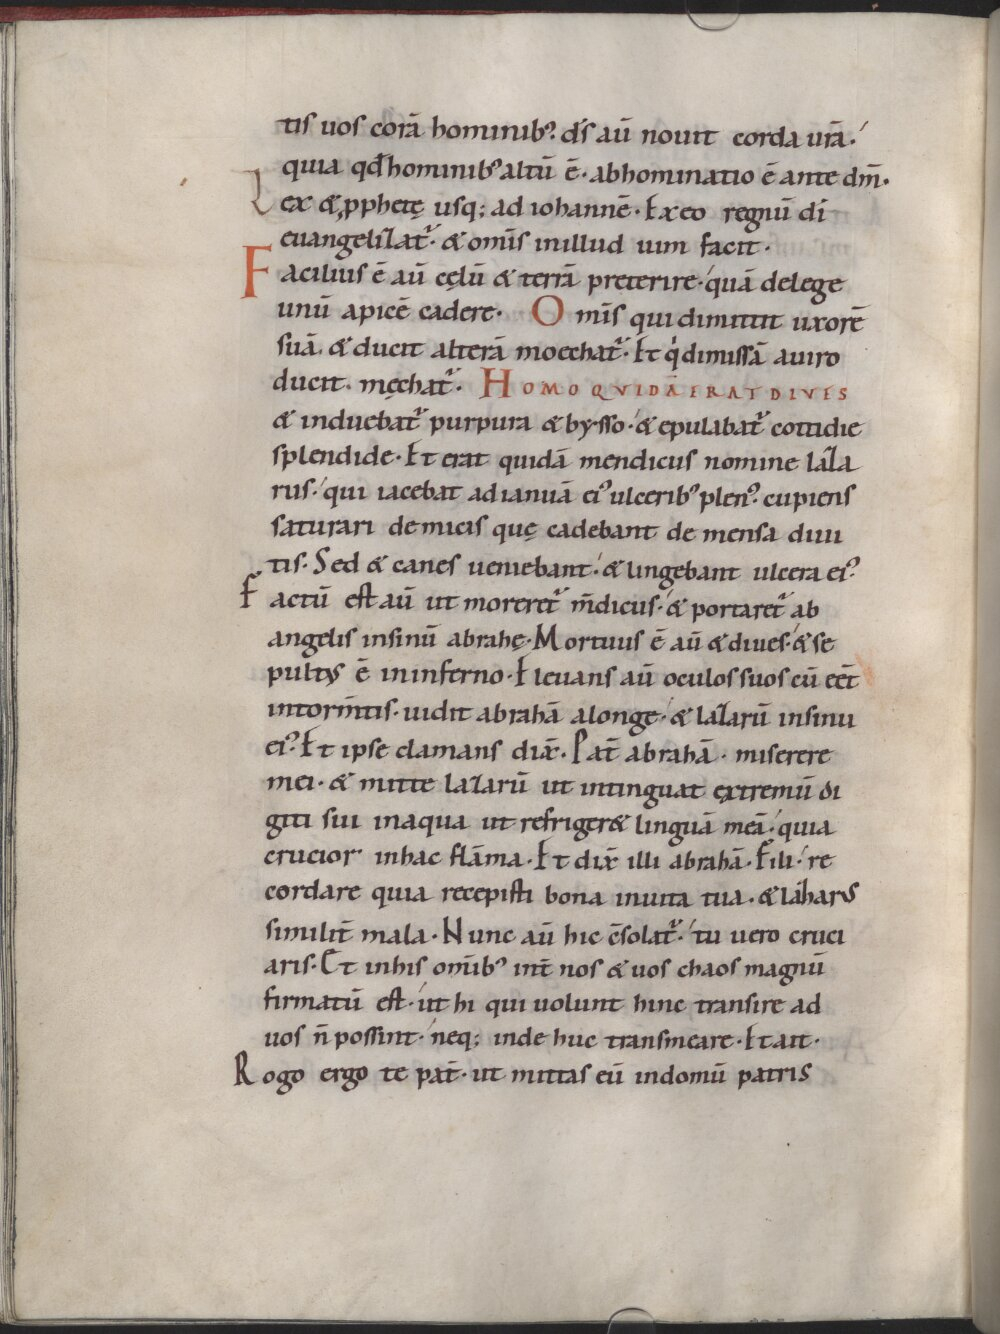 tis uos corā hominib᷒· d̄s aū nouit corda urā·
quia qd̄ hominib᷒ altū ē· abhominatio ē ante dm̄·
Lex & ꝓphetę usq; ad iohannē· Ex eo regnū dī
euangelizat᷑· & om̄is in illud uim facit·
Facilius ē aū cęlū & terrā preterire· quā de lege
unū apicē cadere· Om̄is qui dimittit uxorē
suā· & ducit alterā moechat᷑· Et q̇ dimissā a uiro
ducit· męchat᷑· HOMO QVIDĀ ERAT DIVES
& induebat᷑ purpura & bysso· & epulabat᷑ cottidie
splendide· Et erat quidā mendicus nomine laza
rus· qui iacebat ad ianuā ei᷒ ulcerib᷒ plen᷒· cupiens
saturari de micis quę cadebant de mensa diui
tis· Sed & canes ueniebant· & lingebant ulcera ei᷒·
Factū est aū ut moreret᷑ m̄dicus· & portaret᷑ ab
angelis in sinū abrahę· Mortuus ē aū & diues· & se
pult᷒ ē in inferno· Eleuans aū oculos suos cū eēt
in torm̄tis· uidit abrahā a longe· & lazarū in sinu
ei᷒· Et ipse clamans dix̄· Pat̄ abrahā· miserere
mei· & mitte lazarū ut intinguat extremū di
giti sui in aqua ut refriger& linguā meā· quia
crucior in hac flāma· Et dix̄ illi abrahā· Fili· re
cordare quia recepisti bona in uita tua· & lazarus
similit̄ mala· Nunc aū hic c̄solat᷑· tu uero cruci
aris· Et in his om̄ib᷒ int̄ nos & uos chaos magnū
firmatū est· ut hi qui uolunt hinc transire ad
uos n̄ possint· neq; inde huc transmeare· Et ait·
Rogo ergo te pat̄· ut mittas eū in domū patris